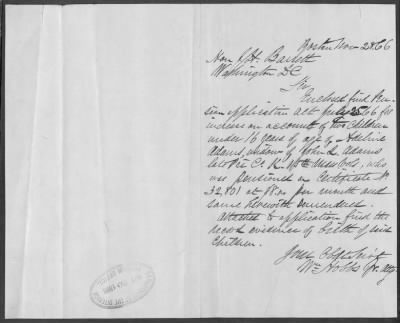 Boston Nov 28 66
Hon J. H. Barrett
Washington D.C.
Sir
Enclosed find Pen-
sion application act July 25 66 for
increase on account of two children
under 16 years of age of
Adams, widow of John L Adams
late Pvt Co. K. Mass Vols, who
was pensioned on Certificate No
32,801 at $8.00 per month and
same herewith surrendered.
Attached to application find the
record evidence of birth of said
Children.
Your Obt Servt
Wm Hobbs for atty